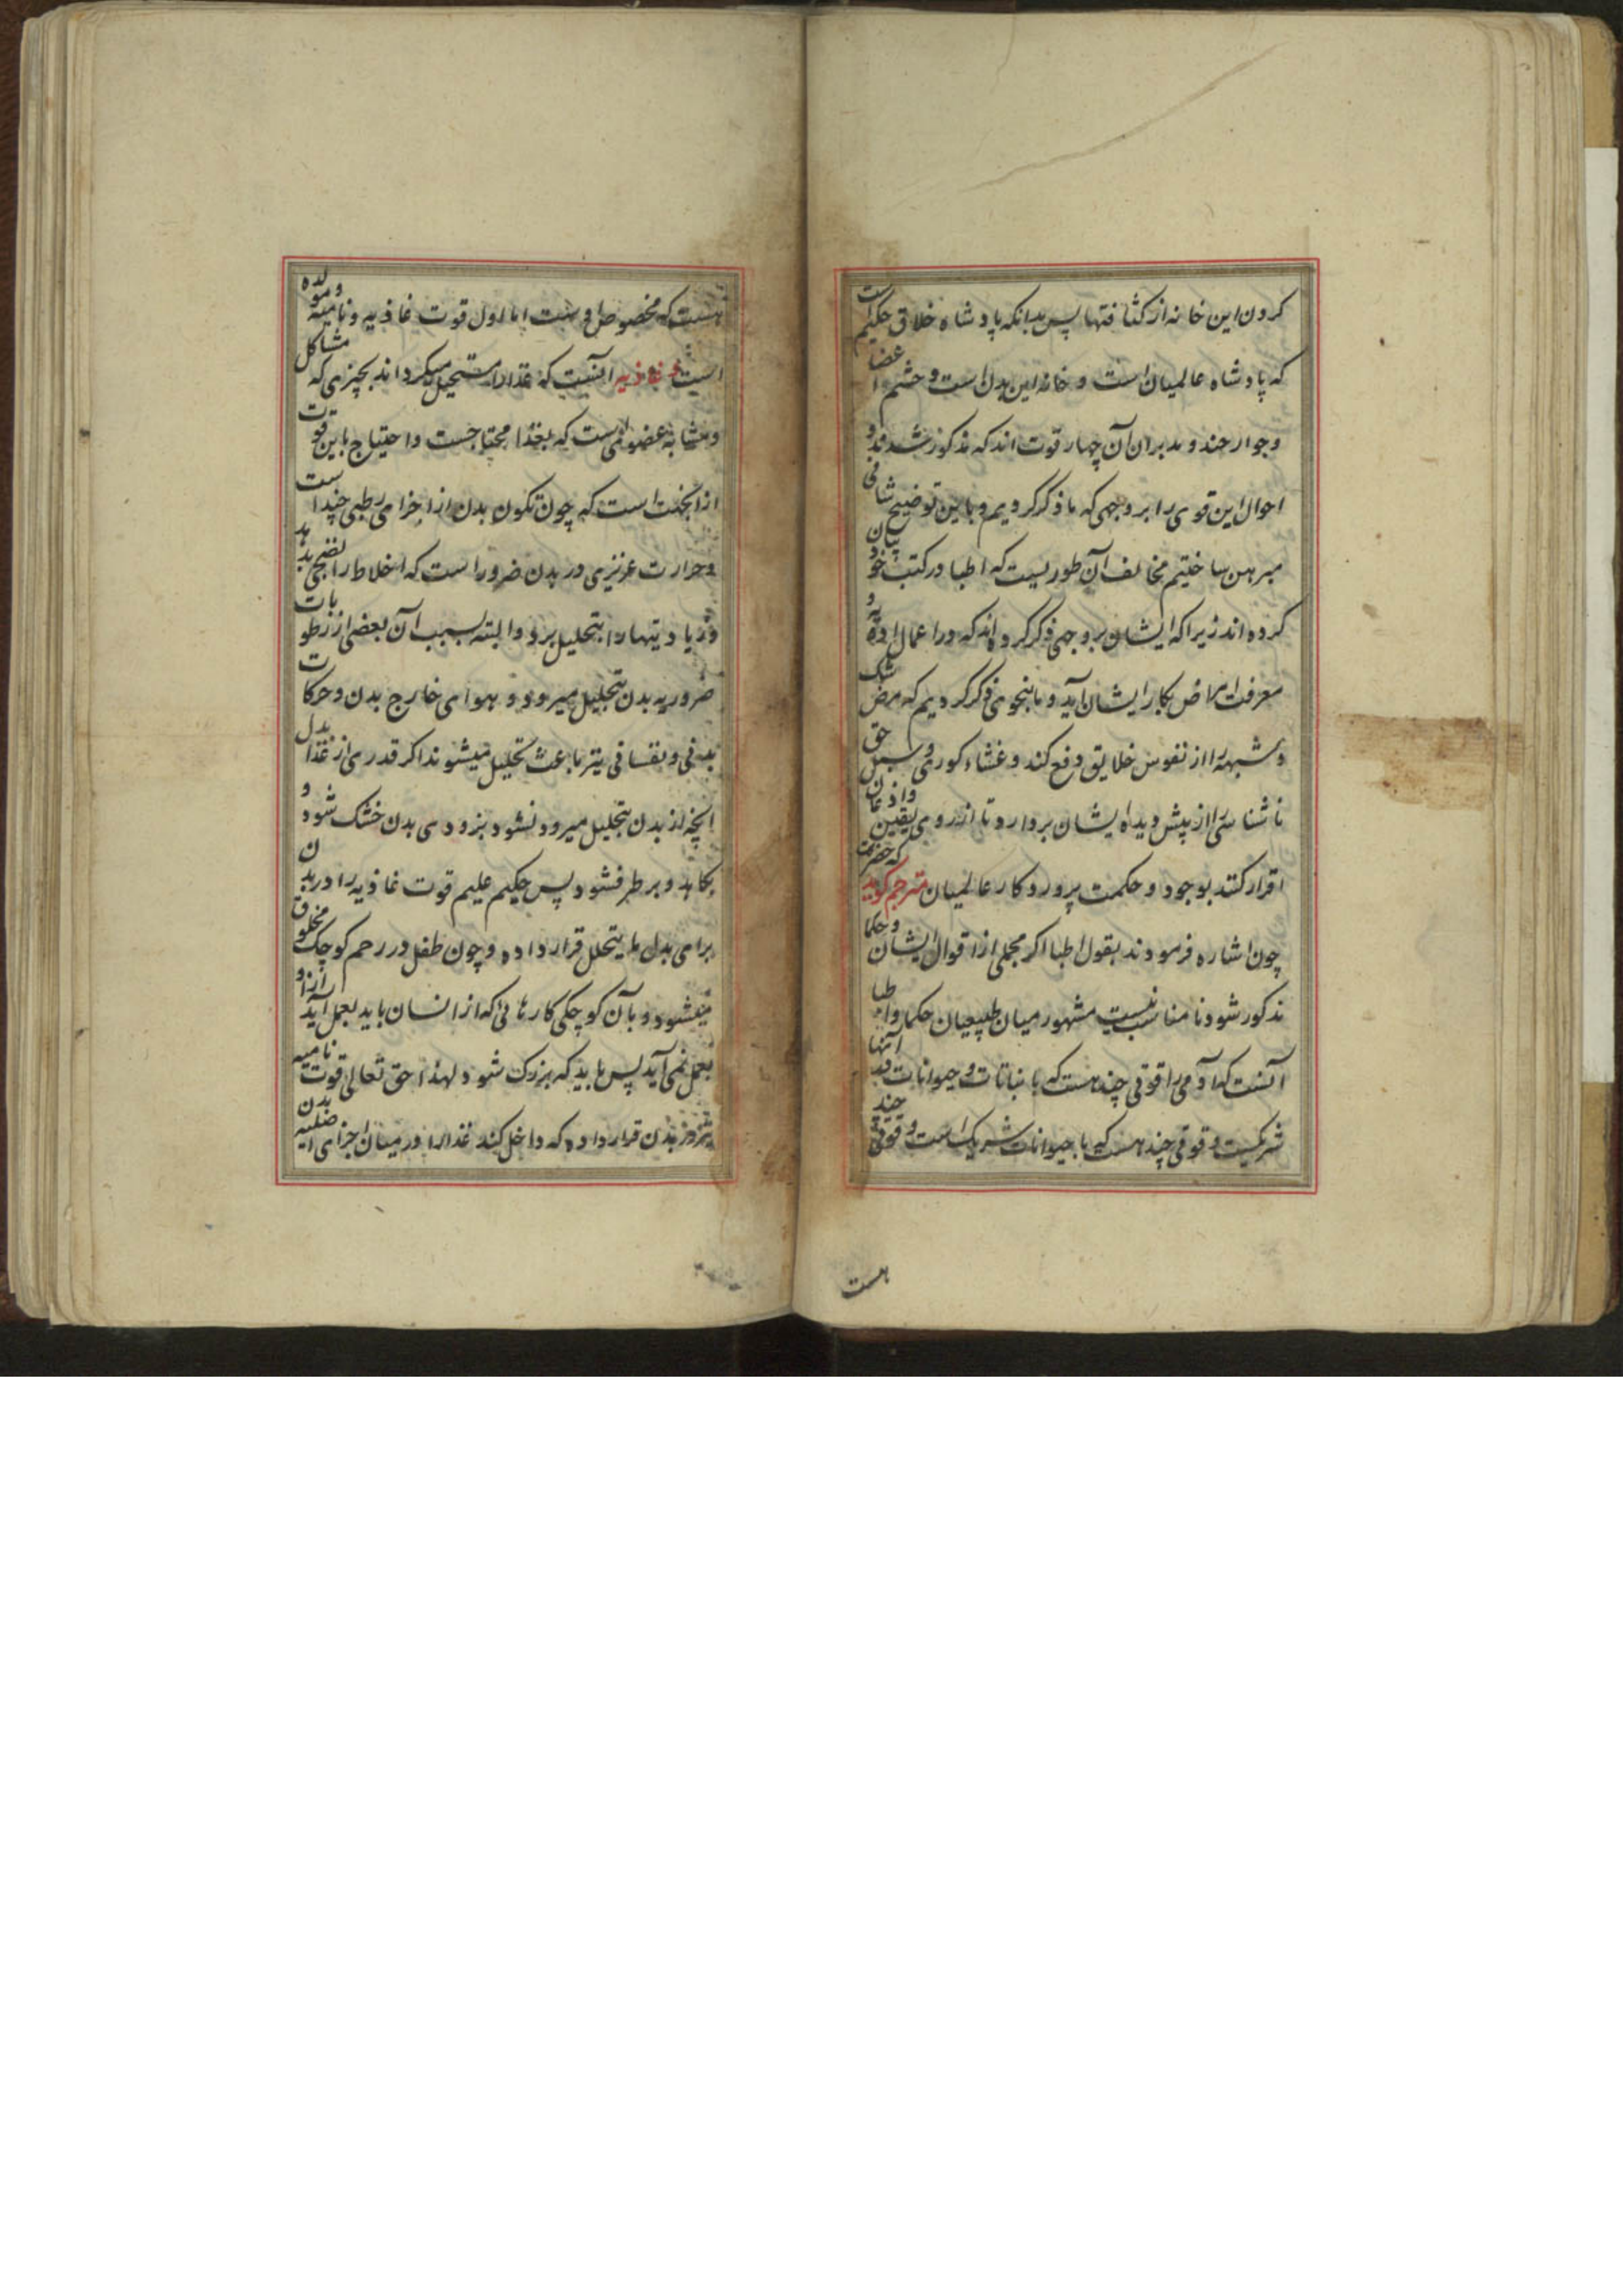 کردن این خانه از کثافتها پس بدانکه پادشاه خلاق حکیم است
که پادشاه عالمیان است و خانه این بدن است و حشم اعضا
و جوارحند و مدبران آن چهار قوت اند که مذکور شدند و
احوال این قوی را بروجهی که ما ذکر کردیم و باین توضیح شافی
مبرهن ساختیم مخالف آن طوریست که اطبا در کتب خود بیان
کرده اند زیرا که ایشان بروجهی ذکر کرده اند که در اعمال ادویه و
معرفت امراض بکار ایشان آید و ما بنحوی ذکر کردیم که مرض شک
و شبهه را از نفوس خلایق دفع کند و غشاء کوری و سبل حق
ناشناسی را از پیش دیده ایشان بردارد تا از روی یقین و اذعان
اقرار کنند بوجود و حکمت پروردکار عالمیان مترجم کوید که حضرت
چون اشاره فرمودند بقول اطبا اکر مجملی از اقوال ایشان و حکما
مذکور شود نا مناسب نیست مشهور میان طبیعیان حکما و اطبا
آنست که آدمی را قوتی چند هست که با نباتات و حیوانات در آنها
شریکست و قوتی چند هست که با حیوانات شریک است و قوتی چند
هست
هست که مخصوص اوست اما اول قوت غاذیه و نامیه و مولده
است غاذیه آنست که غذا را مستحیل میکرداند بچیزی که مشاکل
و مشابه عضوی است که بغذا محتاجست و احتیاج باین قوت
از آنجهت است که چون تکون بدن از اجزای رطبی چند است
و حرارت غریزی در بدن ضرور است که اخلاط را نضجی بدهد
و زیادیتها را بتحلیل برد و البته بسبب آن بعضی از رطوبات
ضروریه بدن بتحلیل میرود و بهوای خارج بدن و حرکات
بدنی و نفسانی نیز باعث تحلیل میشوند اکر قدری از غذا بدل
آنچه از بدن بتحلیل میرود نشود بزودی بدن خشک شود و
بکاهد و برطرف شود پس حکیم علیم قوت غاذیه را در بدن
برای بدل ما یتحلل قرار داده و چون طفل در رحم کوچک مخلوق
میشود و بآن کوچکی کارهائی که از انسان باید بعمل آید از او
بعمل نمی آید پس باید که بزرک شود لهذا حق تعالی قوت نامیه
در بدن قرار داده که داخل کند غذا را در میان اجزای اصلیه بدن